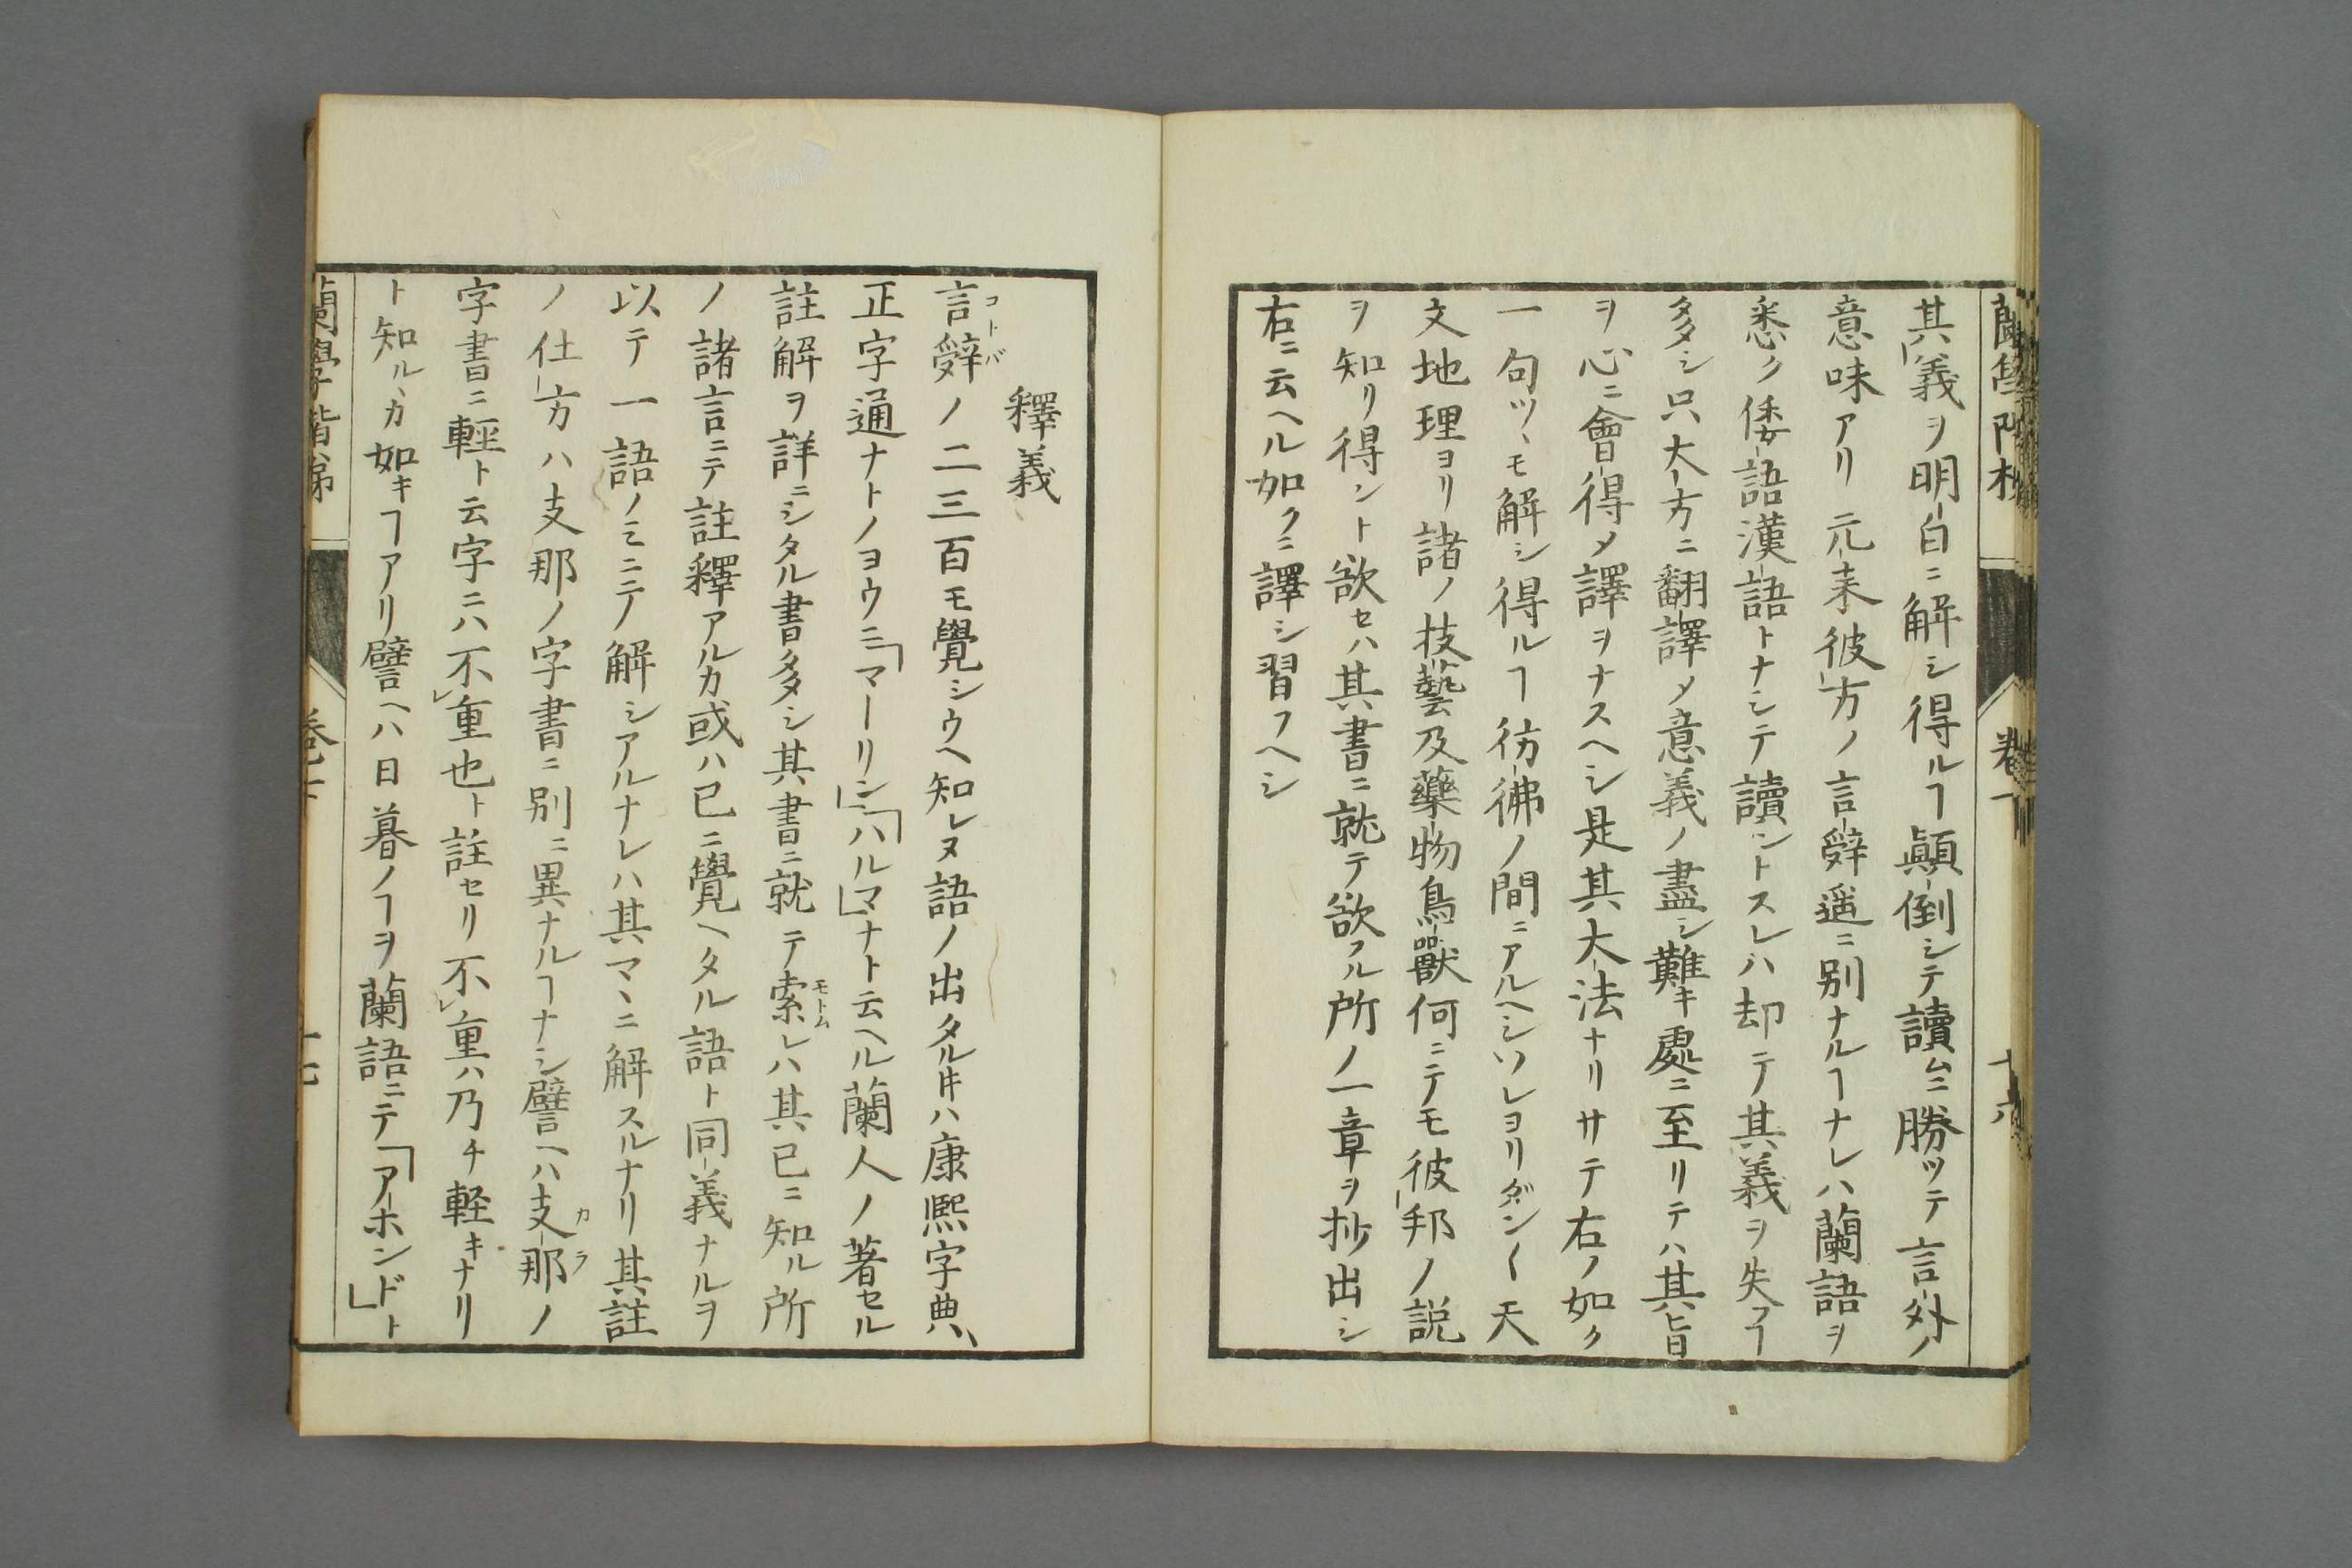 其義ヲ明白ニ解シ得ルヿ顚倒シテ讀ムニ勝ツテ言外ノ
意味アリ元来彼方ノ言辭遥ニ别ナルヿナレハ蘭語ヲ
悉ク倭語漢語トナシテ讀ントスレハ却テ其義ヲ失フヿ
多シ只大方ニ翻譯メ意義ノ盡シ難キ處ニ至リテハ其旨
ヲ心ニ會得メ譯ヲナスヘシ是其大法ナリサテ右ノ如ク
一句ツヽモ解シ得ルヿ彷彿ノ間ニアルヘシソレヨリダン〱天
文地理ヨリ諸ノ技藝及藥物鳥獸何ニテモ彼邦ノ説
ヲ知リ得ント欲セハ其書ニ就テ欲フル所ノ一章ヲ抄出シ
右ニ云ヘル如クニ譯シ習フヘシ
釋義
言辭ノ二三百モ覺シウヘ知レヌ語ノ出タル𪜈ハ康熙字典、
コトバ
正字通ナトノヨウニ「マーリン」「ハルマ」ナト云ヘル蘭人ノ著セル
註解ヲ詳ニシタル書多シ其書ニ就テ索レハ其已ニ知ル所
モトム
ノ諸言ニテ註釋アルカ或ハ已ニ覺ヘタル語ト同義ナルヲ
以テ一語ノミニテノ解シアルナレハ其マヽニ解スルナリ其註
ノ仕方ハ支那ノ字書ニ别ニ異ナルヿナシ譬ヘハ支那ノ
カラ
字書ニ輕ト云字ニハ不レ重也ト註セリ不レ重ハ乃チ軽キナリ
ト知ルヽカ如キヿアリ譬ヘハ日暮ノヿヲ蘭語ニテ「アーホンド」ト
蘭學階梯